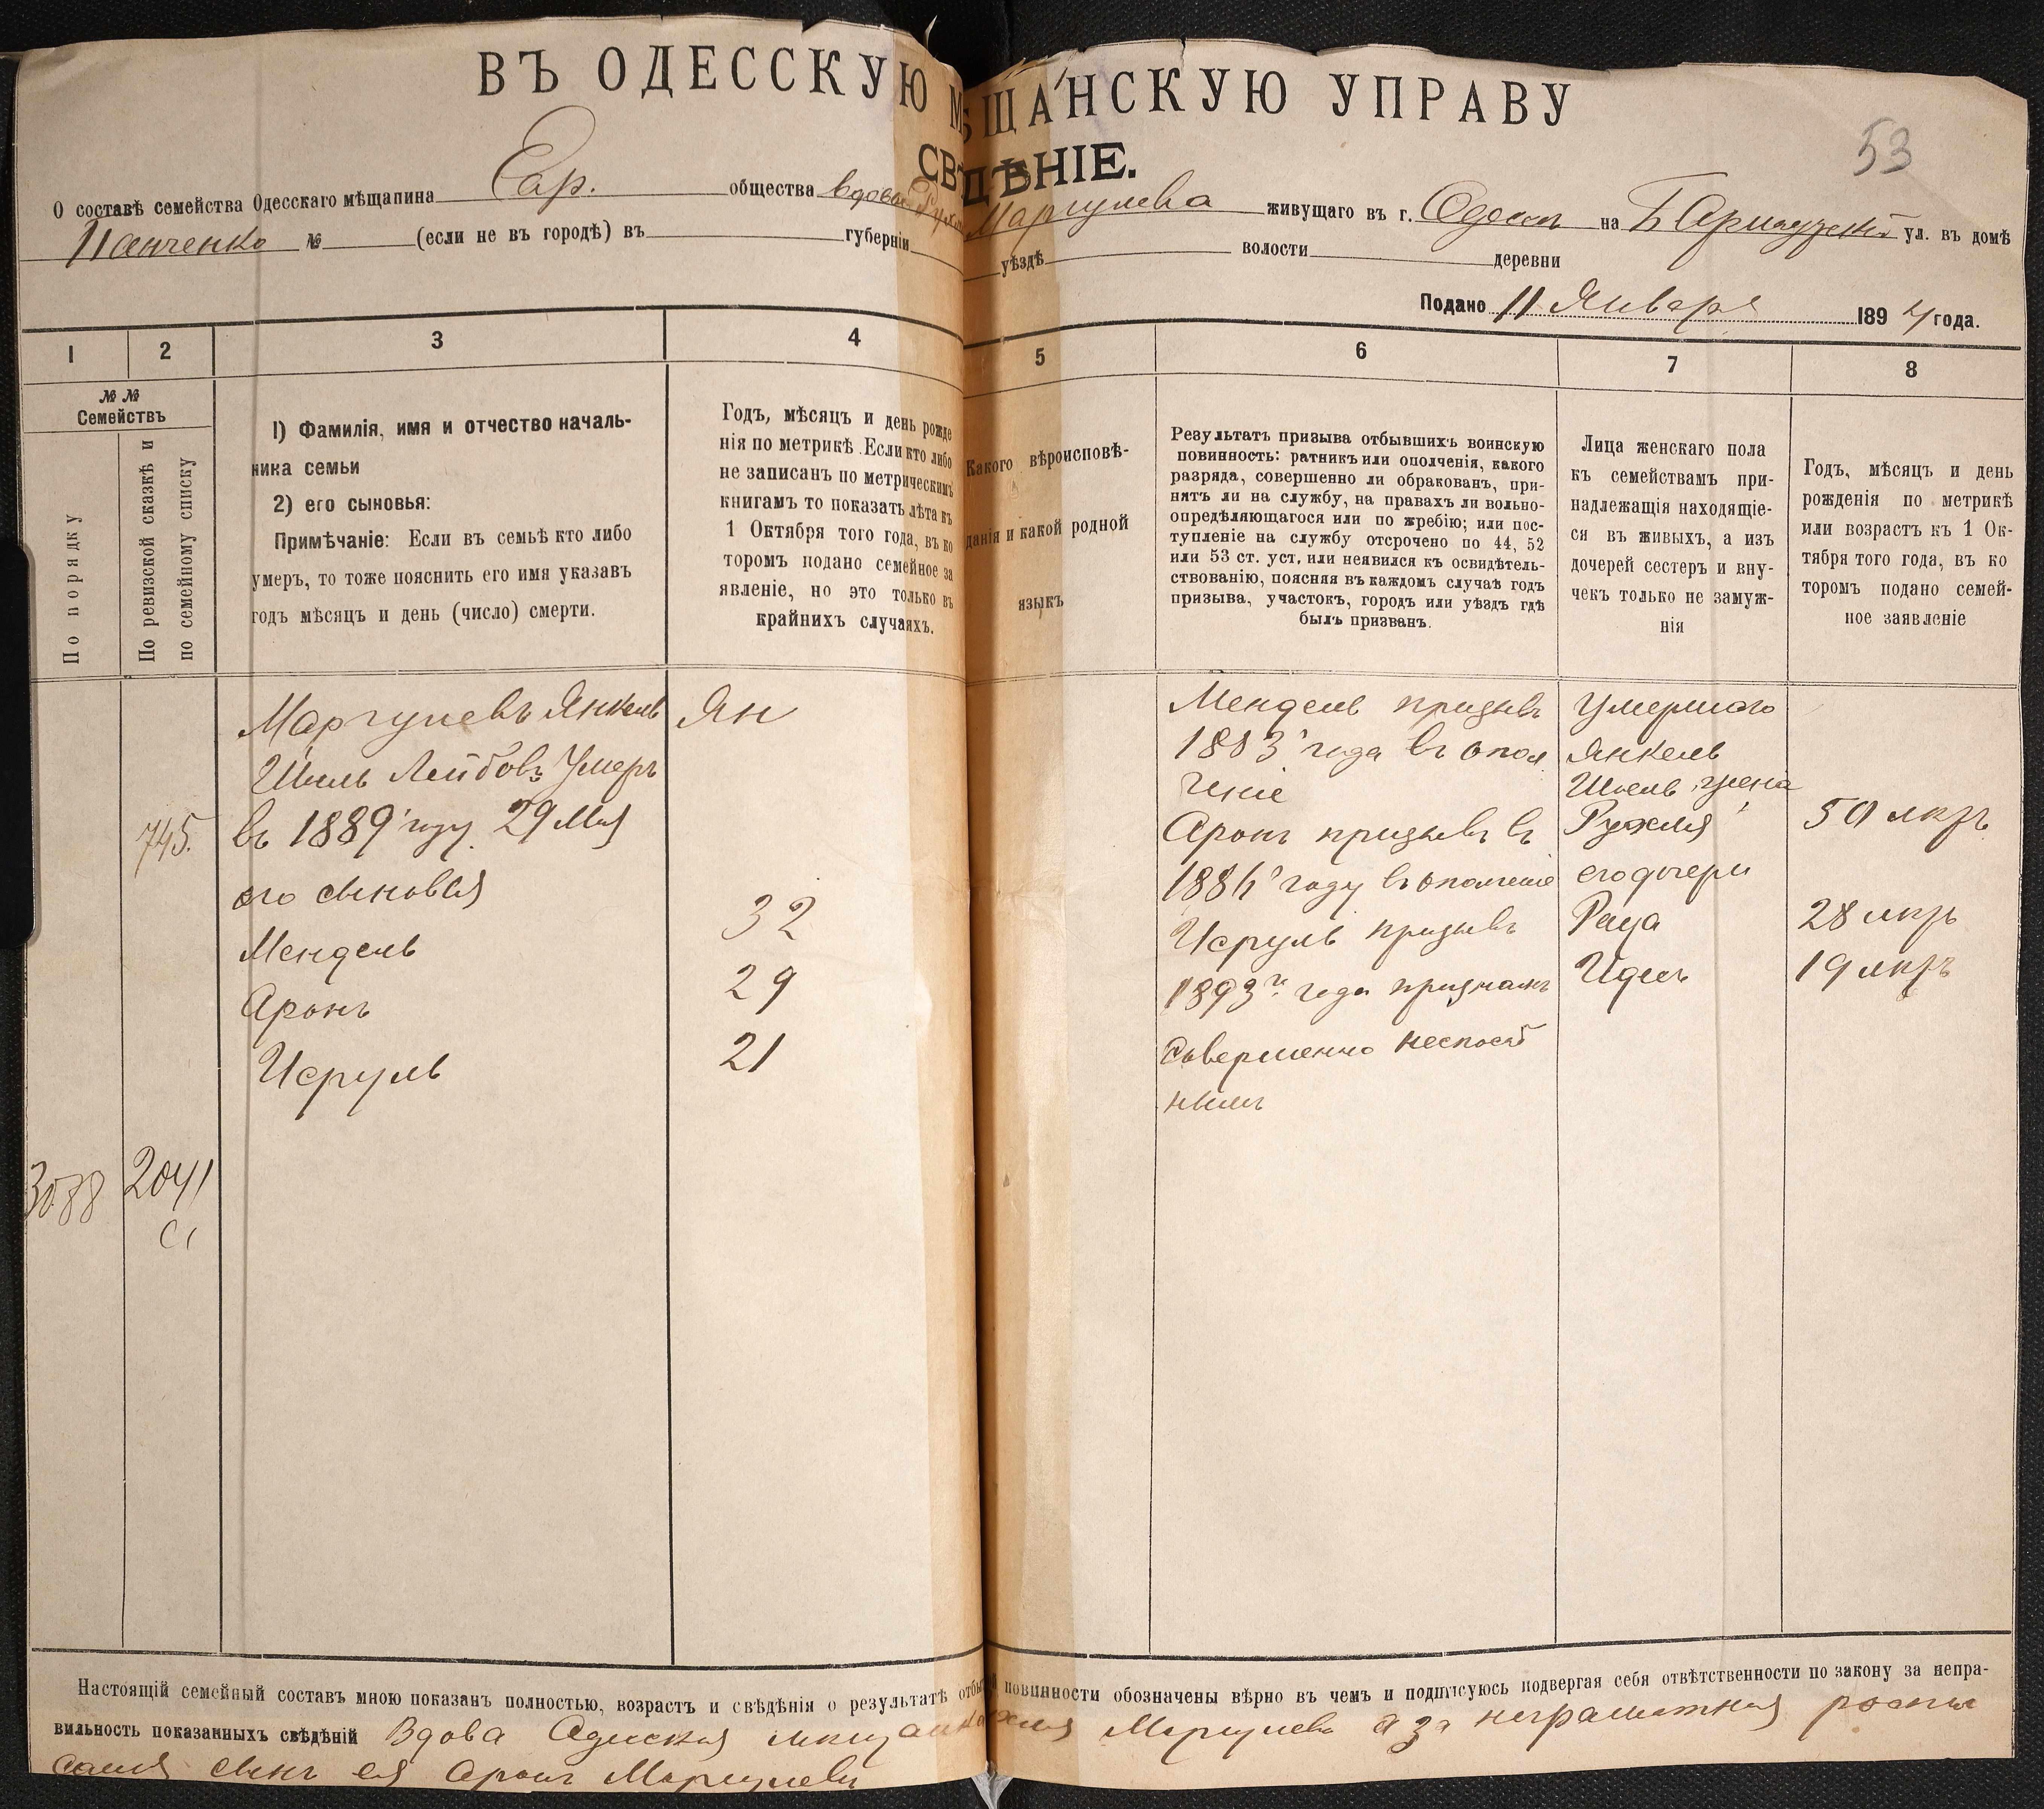 ВЪ ОДЕССКУЮ МѢЩАНСКУЮ УПРАВУ
53
СВѢДѢНІЕ.
О составѣ семейства Одесскаго мѣщанина Евр. общества вдовы Маргулева живущаго въ г. Одессѣ на Б Арнаутской ул. въ домѣ
Панченко № (если не въ городѣ) въ губерніи уѣздѣ волости деревни
Подано 11 Января 1894 года.
1 2 3 4 5 6 7 8
№№
Семействъ
По порядку
По ревизской сказкѣ и
по семейному списку
1) Фамилія, имя и отчество началь-
ника семьи
2) его сыновья:
Примѣчаніе: Если въ семьѣ кто либо
умеръ, то тоже пояснить его имя указавъ
годъ мѣсяцъ и день (число) смерти.
Годъ, мѣсяцъ и день рожде
нія по метрикѣ. Если кто либо
не записанъ по метрическимъ
книгамъ то показать лѣта къ
1 Октября того года, въ ко
торомъ подано семейное за
явленіе, но это только въ
крайнихъ случаяхъ.
Какого вѣроисповѣ-
данія и какой родной
языкъ
Результатъ призыва отбывшихъ воинскую
повинность: ратникъ или ополченія, какого
разряда, совершенно ли обракованъ, при-
нятъ ли на службу, на правахъ ли вольно-
опредѣляющагося или по жребію; или пос-
тупленіе на службу отсрочено по 44, 52
или 53 ст. уст, или неявился къ освидѣтель-
ствованію, поясняя въ каждомъ случаѣ годъ
призыва, участокъ, городъ или уѣздъ гдѣ
былъ призванъ.
Лица женскаго пола
къ семействамъ при-
надлежащія находящіе-
ся въ живыхъ, а изъ
дочерей сестеръ и вну-
чекъ только не замуж-
нія
Годъ, мѣсяцъ и день
рожденія по метрикѣ
или возрастъ къ 1 Ок-
тября того года, въ ко
торомъ подано семей-
ное заявленіе
745.
3088
2041
Маргулевъ Янкель
Шмиль Лейбовъ Умеръ
въ 1889 году 29 Мая
его сыновья
Мендель
Аронъ
Исруль
Ян
32
29
21
Мендель призывъ
1883 года въ опол
ченіе
Аронъ призывъ въ
1886 году въ ополченіе
Исруль призывъ
1893 года признанъ
Совершенно неспособ
нымъ
Умершаго
Янкель
Шмиль жена
Рухля
его дочери
Раца
Идесь
50 лѣтъ
28 лѣтъ
19 лѣтъ
Настоящій семейный составъ мною показанъ полностью, возрастъ и свѣдѣнія о результатѣ отбытія повинности обозначены вѣрно въ чемъ и подписуюсь подвергая себя отвѣтственности по закону за непра-
вильность показанныхъ свѣдѣній Вдова Одесская мѣщанка Рухля Маргулева а за неграмотная роспи
сался сынъ ея Аронъ Маргулевъ